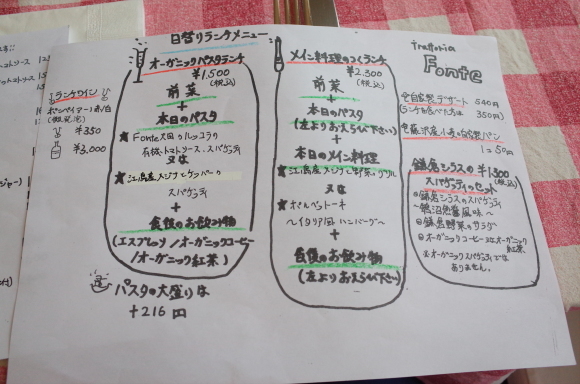 日替りランチメニュー
オーガニックパスタランチ
¥1.500
(税込)
前菜
+
本日のパスタ
★Fonte大田のルッコラの
有機トマトソース.スパゲッティ
又は
★江ノ島産スジコとケッパーの
スパゲッティ
+
食後のお飲み物
(エスプレッソ/オーガニックコーヒー
/オーガニック紅茶)
パスタの大盛りは
+216円
メイン料理のつくランチ
¥2,300
(税込)
前菜
+
本日のパスタ
(左よりおえらび下さい)
+
本日のメイン料理
又は
★ポルペットーネ
〜イタリア風ハンバーグ〜
+
食後のお飲み物
(左よりおえらび下さい)
trattoria
Fonte
自家製デザート 540円
(ランチ食べた方は 350円)
藤沢産小麦の自家製パン
1コ50円
鎌倉シラスの ¥1,300
(税込)
スパゲッティのセット
鎌倉シラスのスパゲッティ
〜鵠沼魚醤風味〜
鎌倉野菜のサラダ
オーガニックコーヒー又はオーガニック
紅茶
※オーガニックスパゲッティでは
ありません。
ランチワイン
(微発泡)
¥350
¥3,000